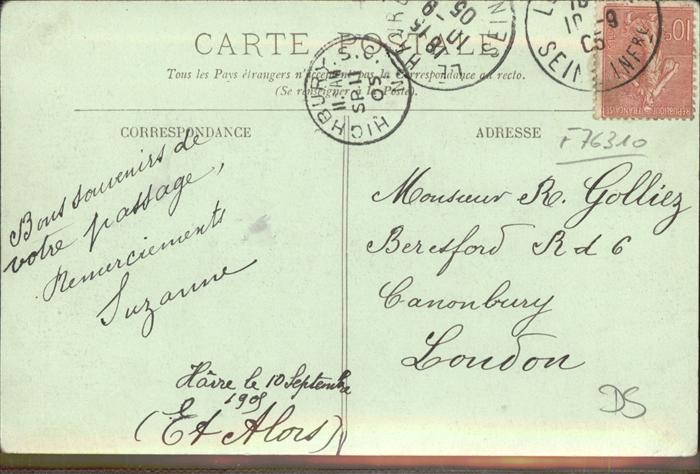 CARTE POSTALE
Tous les Pays étrangers n'acceptent pas la Correspondance au recto.
(Se renseigner à la Poste).
CORRESPONDANCE
Bons souvenirs de
votre passage,
Remerciements
Suzanne
Hâvre le 10 Septembre
1905
(Et Alors)
ADRESSE
F76310
Monsieur R. Golliez
Beresford Rd 6
Canonbury
London
DS
HIGHBURY S.O. N
11 AM
SP 11
05
LE HAVRE
18 15
10 - 9
05
SEINE
10 - 9
05
SEINE INFRE
10